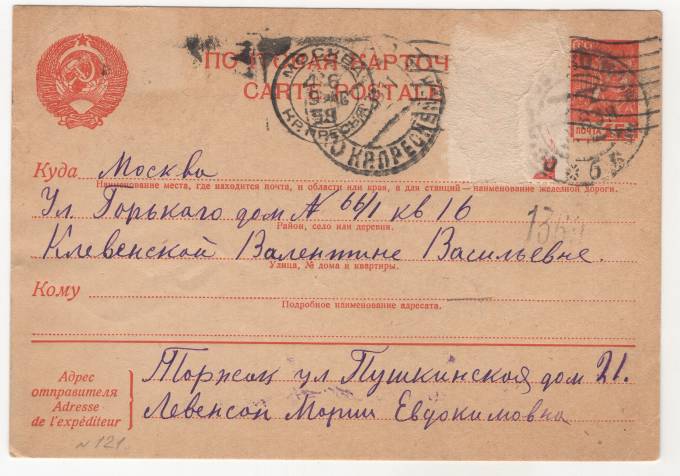 ПОЧТОВАЯ КАРТОЧ
CARTE POSTALE
МОСКВА
ПОЧТА
Куда Москва
Наименование места, где находится почта, и области или края, а для станций—наименование железной дороги.
Ул. Горького дом № 66/1 кв 16
Район, село или деревня.
Клевенской Валентине Васильевне.
Улица, № дома и квартиры.
Кому
Подробное наименование адресата.
Адрес отправителя
Adresse de l'expéditeur
Торжок ул Пушкинская дом 21.
Левенсон Марии Евдокимовна
№ 121.